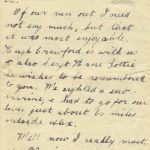 on.
Of our run out I need
not say much, but that
it was most enjoyable.
Hugh Crawford is with us
& also Sergt
he wishes to be remembered
to you. We sighted a sub-
marine, & had to go for our
lives just about 60 miles
outside
Well now I really must